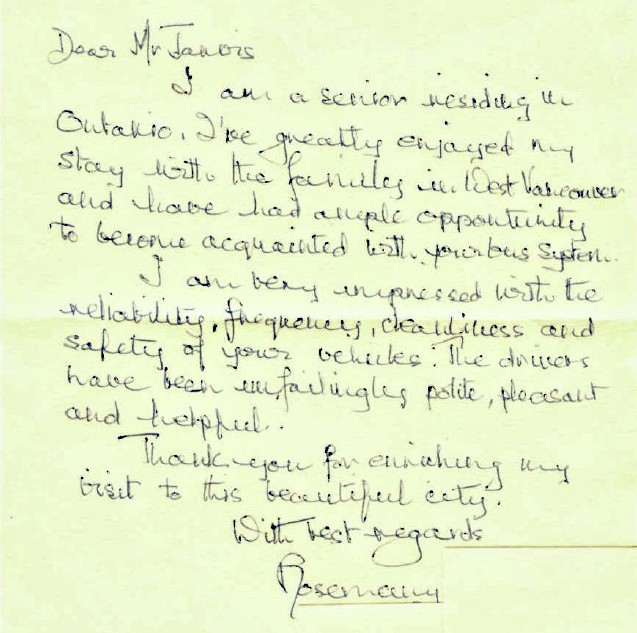 Dear Mr Jarvis
I am a senior residing in
Ontario. I've greatly enjoyed my
stay with the family in West Vancouver
and have had ample opportunity
to become acquainted with your bus system.
I am very impressed with the
reliability, frequency, cleanliness and
safety of your vehicles. The drivers
have been unfailingly polite, pleasant
and helpful.
Thank you for enriching my
visit to this beautiful city.
With best regards
Rosemary